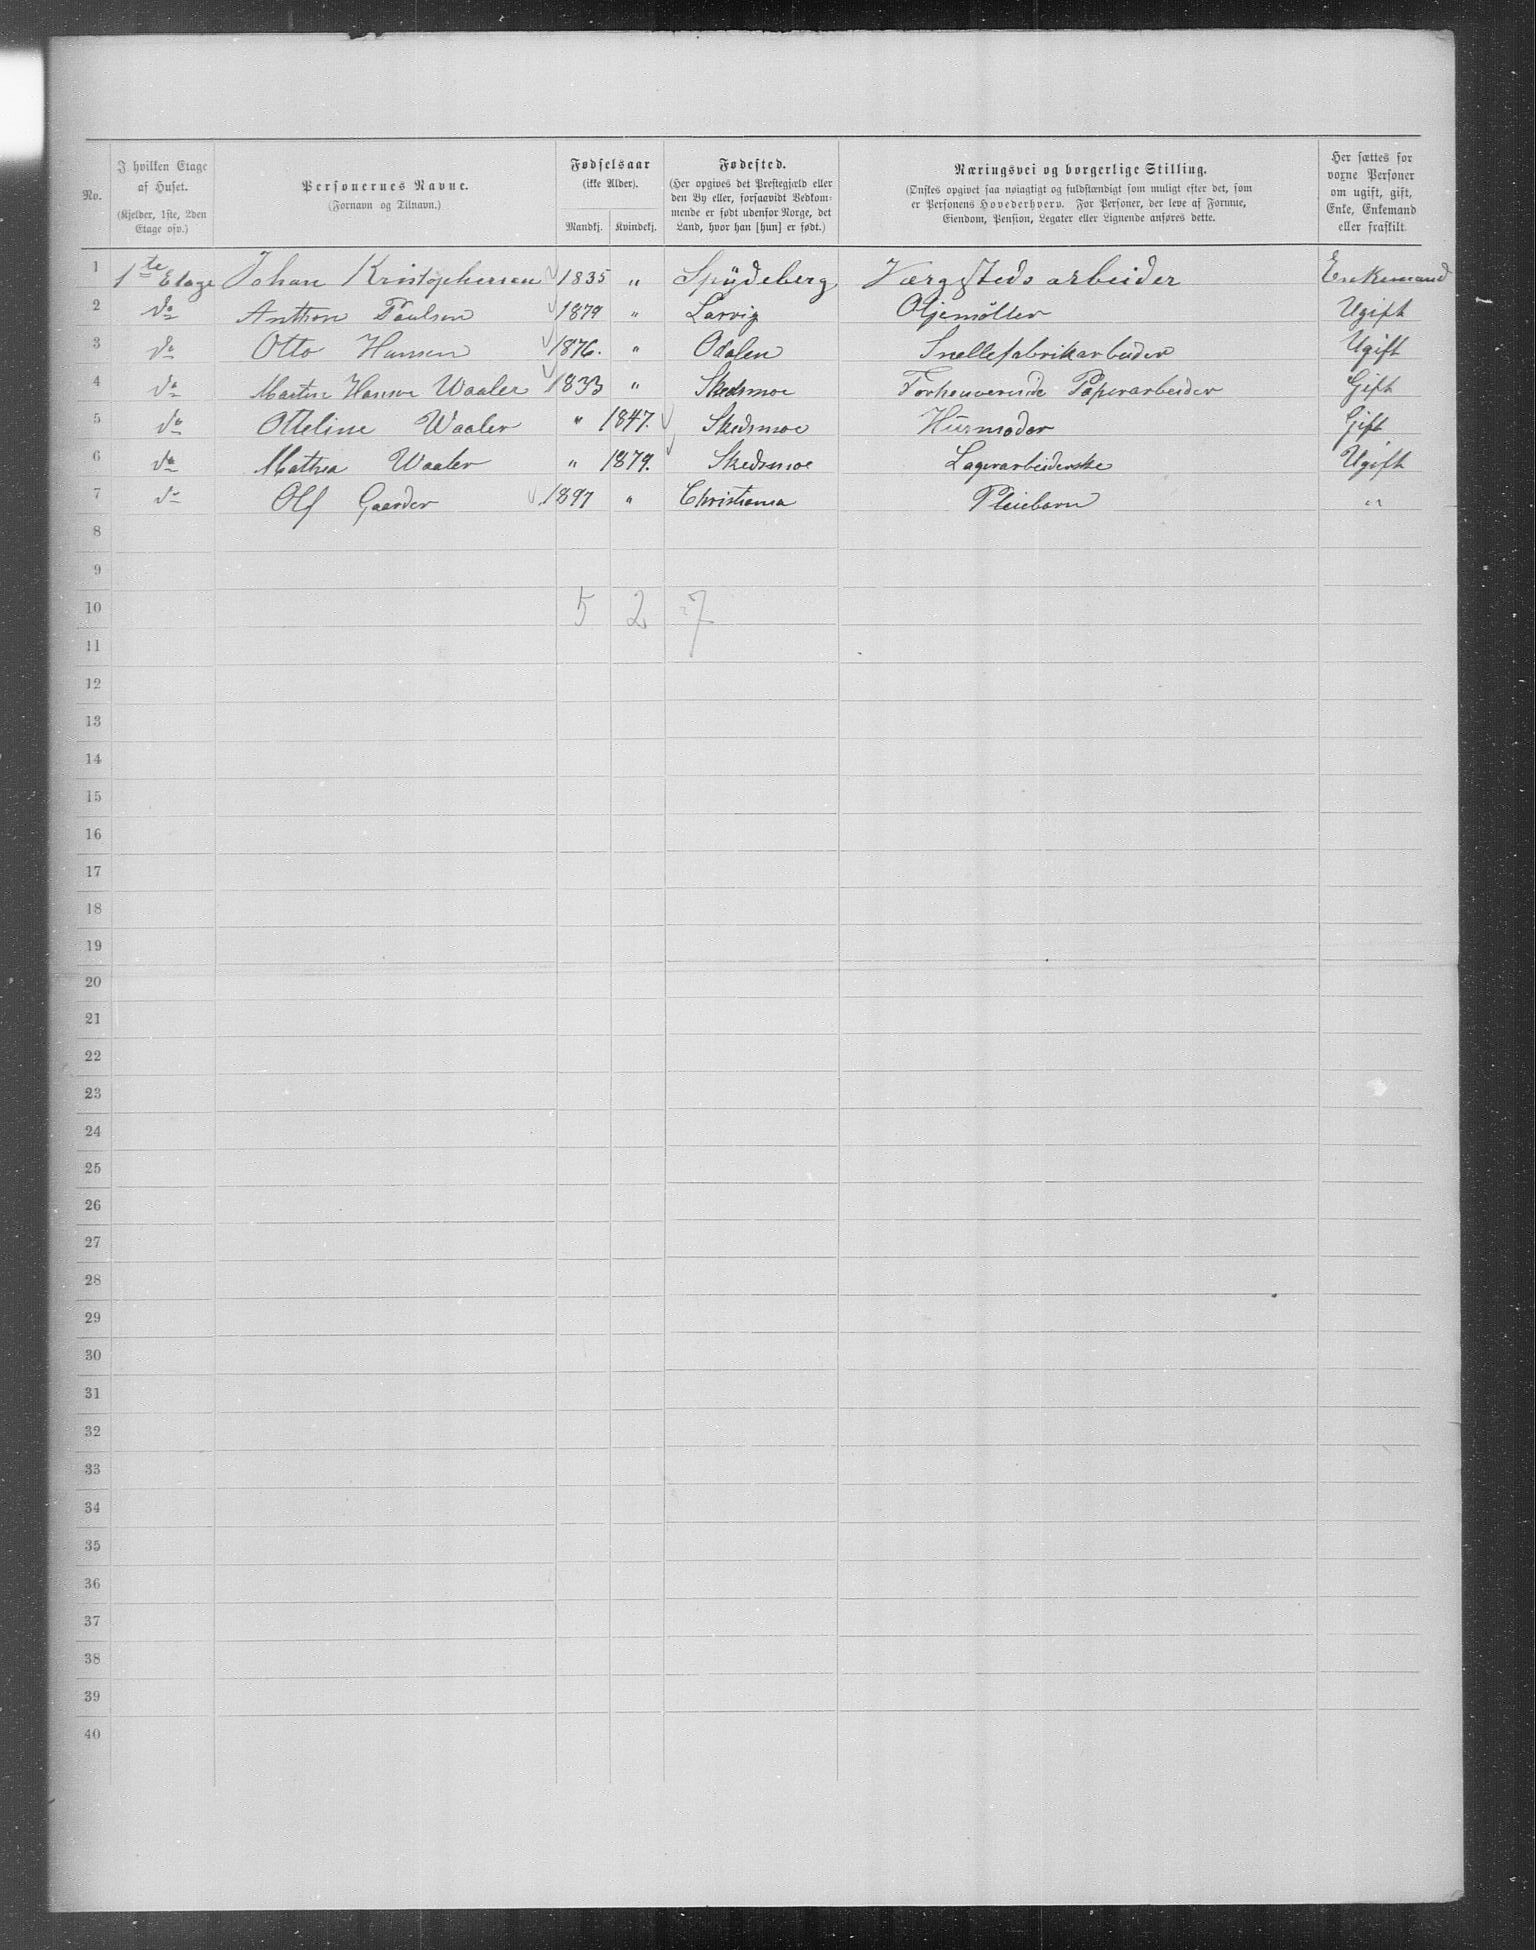 No.
I hvilken Etage af Huset.
(Kjelder, 1ste, 2den Etage osv.)
Personernes Navne.
(Fornavn og Tilnavn.)
Fødselsaar
(ikke Alder).
Mandkj. Kvindekj.
Fødested.
(Her opgives det Prestegjæld eller den By eller, forsaavidt Vedkommende er født udenfor Norge, det Land, hvor han [hun] er født.)
Næringsvei og borgerlige Stilling.
(Ønskes opgivet saa nøiagtigt og fuldstændigt som muligt efter det, som er Personens Hovederhverv. For Personer, der leve af Formue, Eiendom, Pension, Legater eller Lignende anføres dette.
Her sættes for voxne Personer om ugift, gift, Enke, Enkemand eller fraskilt.
1 1ste Etage Johan Kristophersen 1835 " Spÿdeberg Værgsteds arbeider Enkemand
2 do Anthon Paulsen 1879 " Larvig Oljemøller Ugift
3 do Otto Hansen 1876. " Odalen Snellefabrikarbeider Ugift
4 do Martin Hansen Waaler 1833 " Skedsmoe Papirarbeider Gift
5 do Otteline Waaler " 1847. Skedsmoe Husmoder Gift
6 do Mathea Waaler " 1879. Skedsmoe Lagerarbeiderske Ugift
7 do Olf Gaarder 1897 " Christiania Pleiebarn "
8
9
10 5 2 7
11
12
13
14
15
16
17
18
19
20
21
22
23
24
25
26
27
28
29
30
31
32
33
34
35
36
37
38
39
40